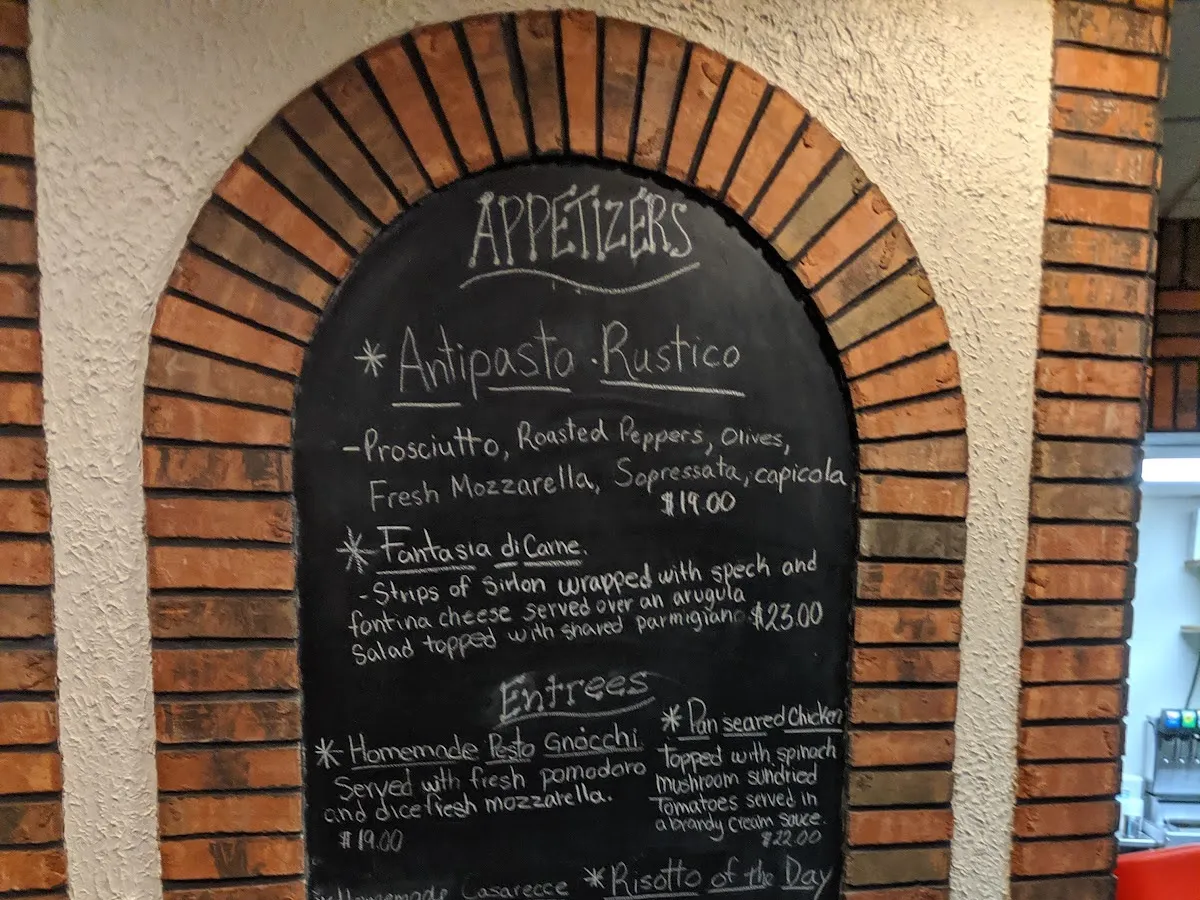 APPETIZERS
* Antipasto · Rustico
- Prosciutto, Roasted Peppers, Olives,
Fresh Mozzarella, Sopressata, capicola
$19.00
* Fantasia di Carne.
- Strips of Sirlon wrapped with speck and
fontina cheese served over an arugula
Salad topped with shared parmigiano $23.00
Entrees
* Homemade Pesto Gnocchi
Served with fresh pomodoro
and dice fresh mozzarella.
$19.00
* Pan seared Chicken
Topped with spinach
mushroom sundried
Tomatoes served in
a brandy cream sauce.
$22.00
* Homemade Casarecce
* Risotto of the Day